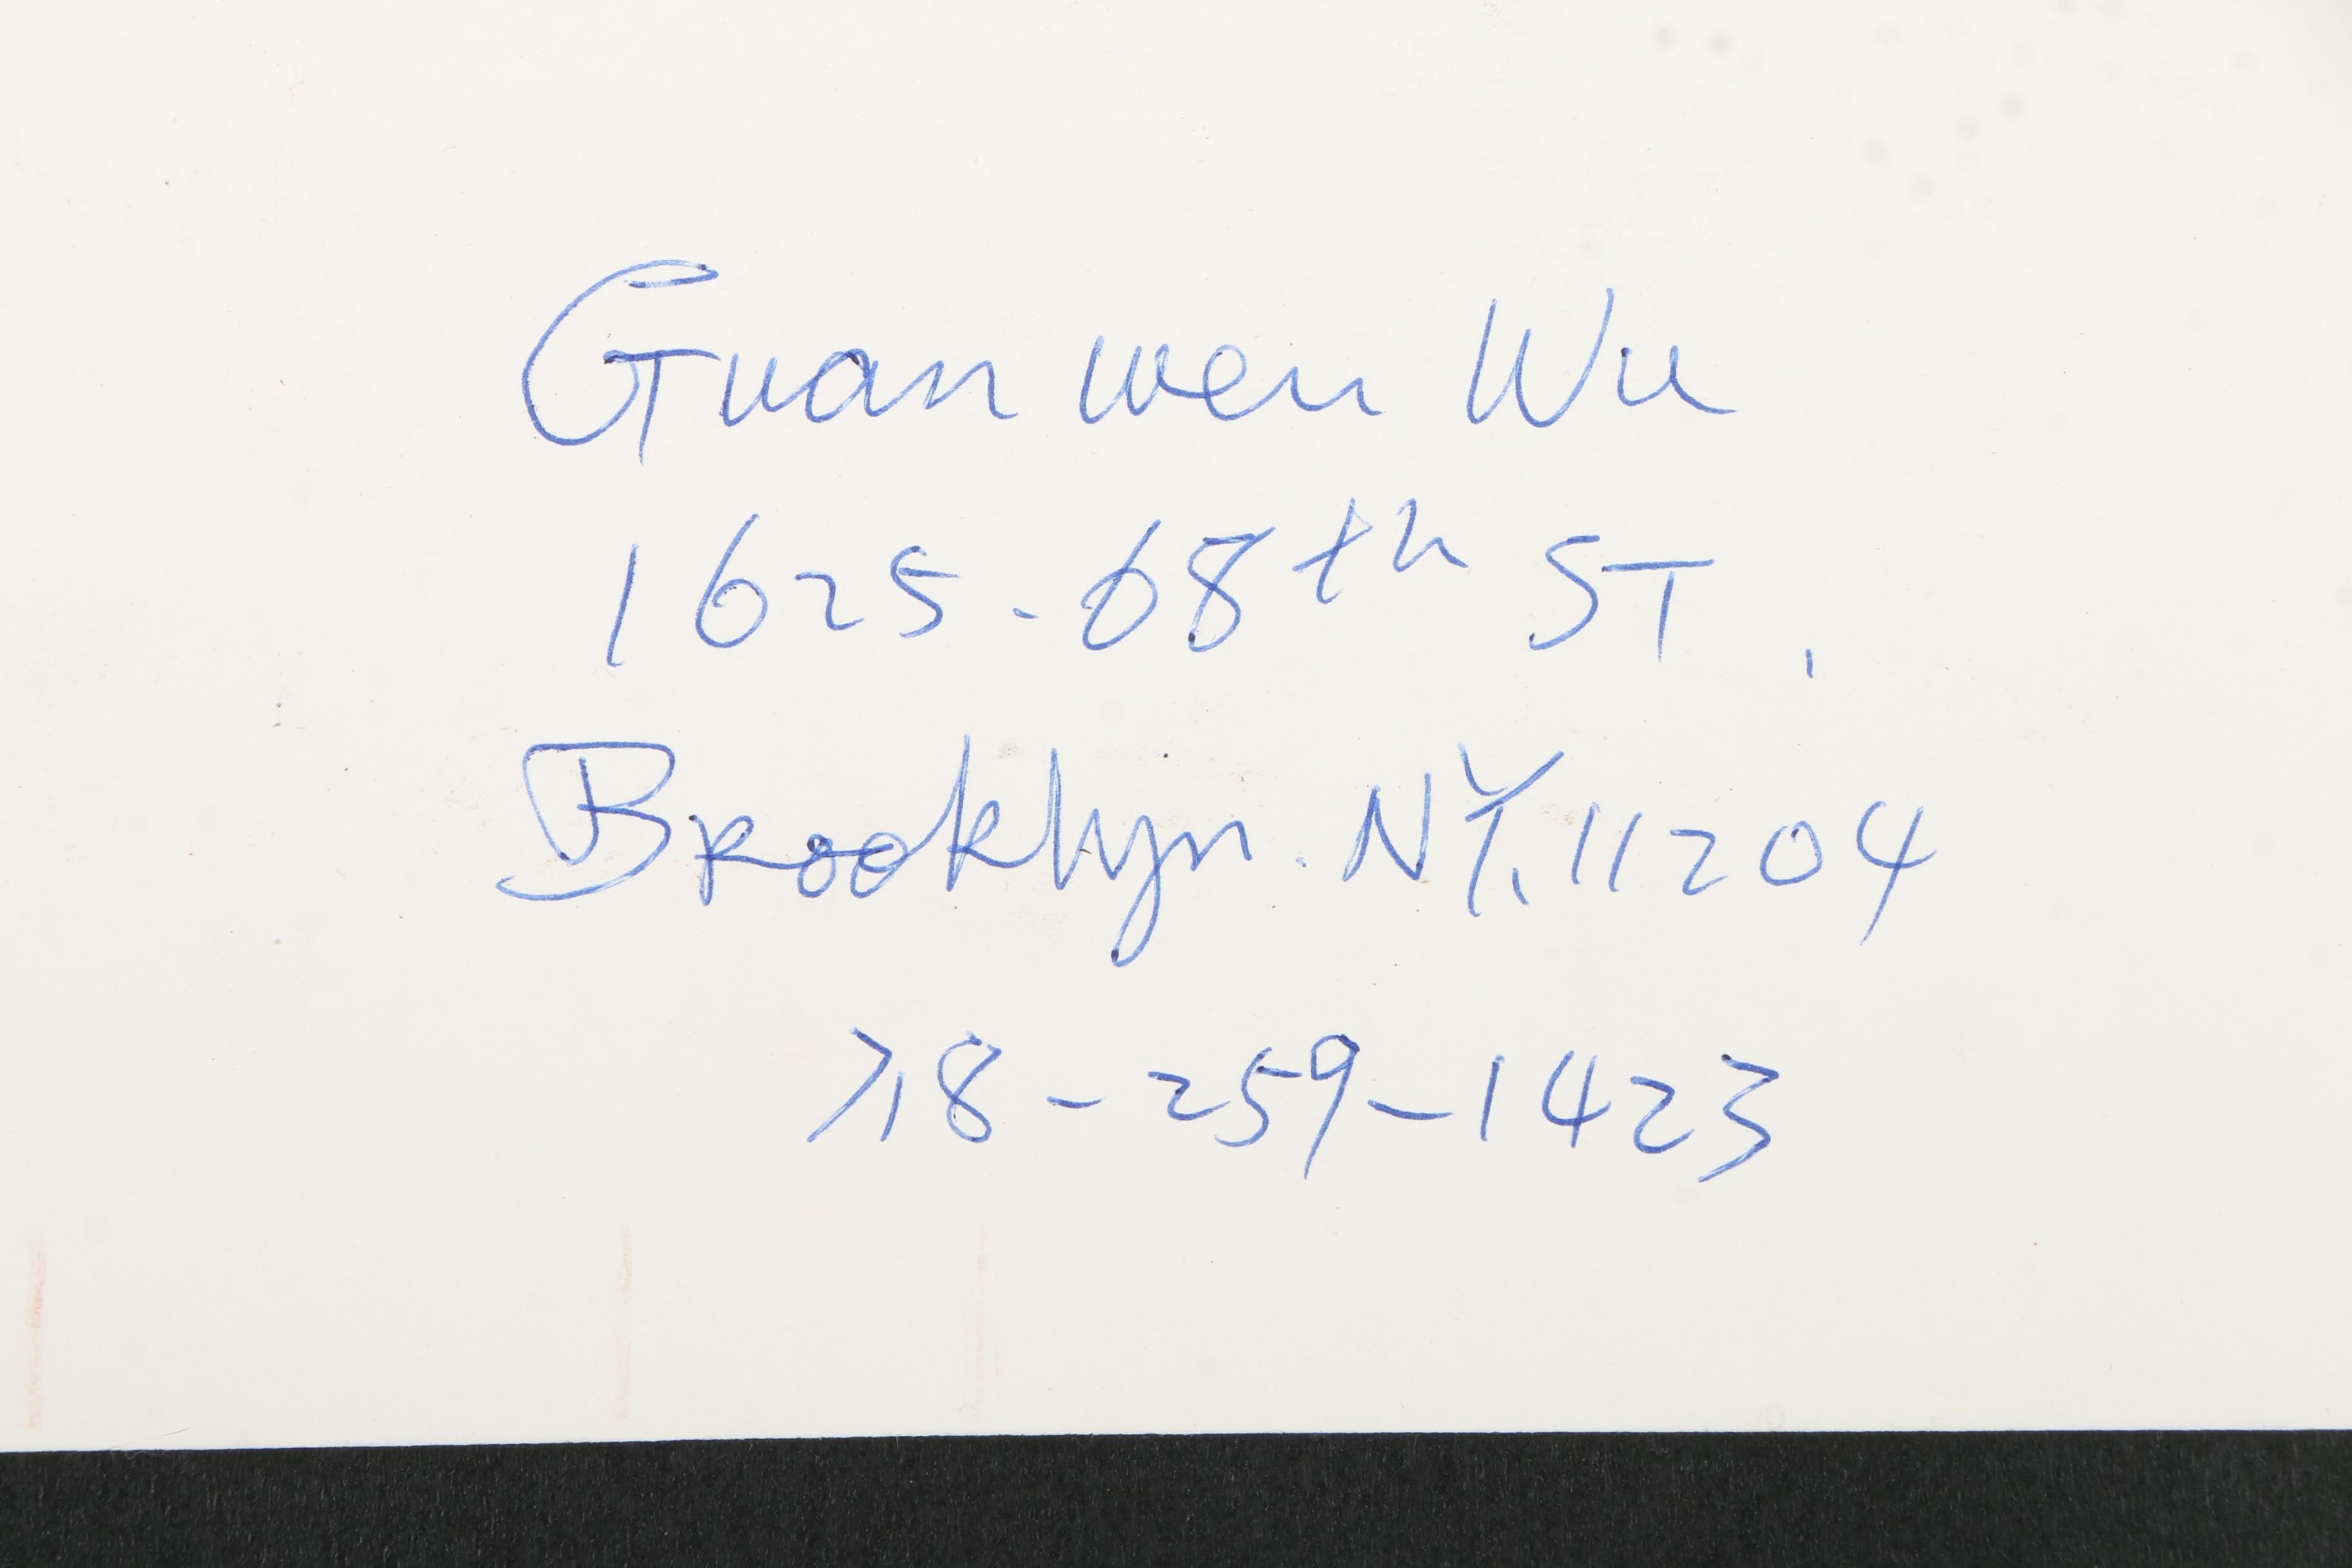 Guan wen Wu
1625-68th ST,
Brooklyn. NY, 11204
718-259-1423